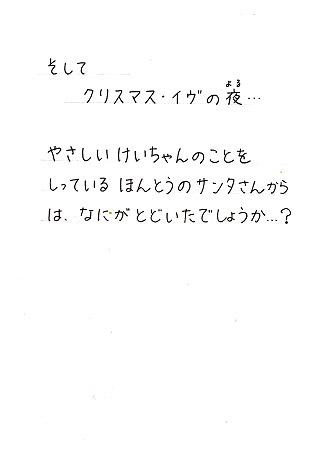 そして
クリスマス・イヴの夜…
よる
やさしい けいちゃんのことを
しっている ほんとうのサンタさんから
は、なにが とどいたでしょうか…？